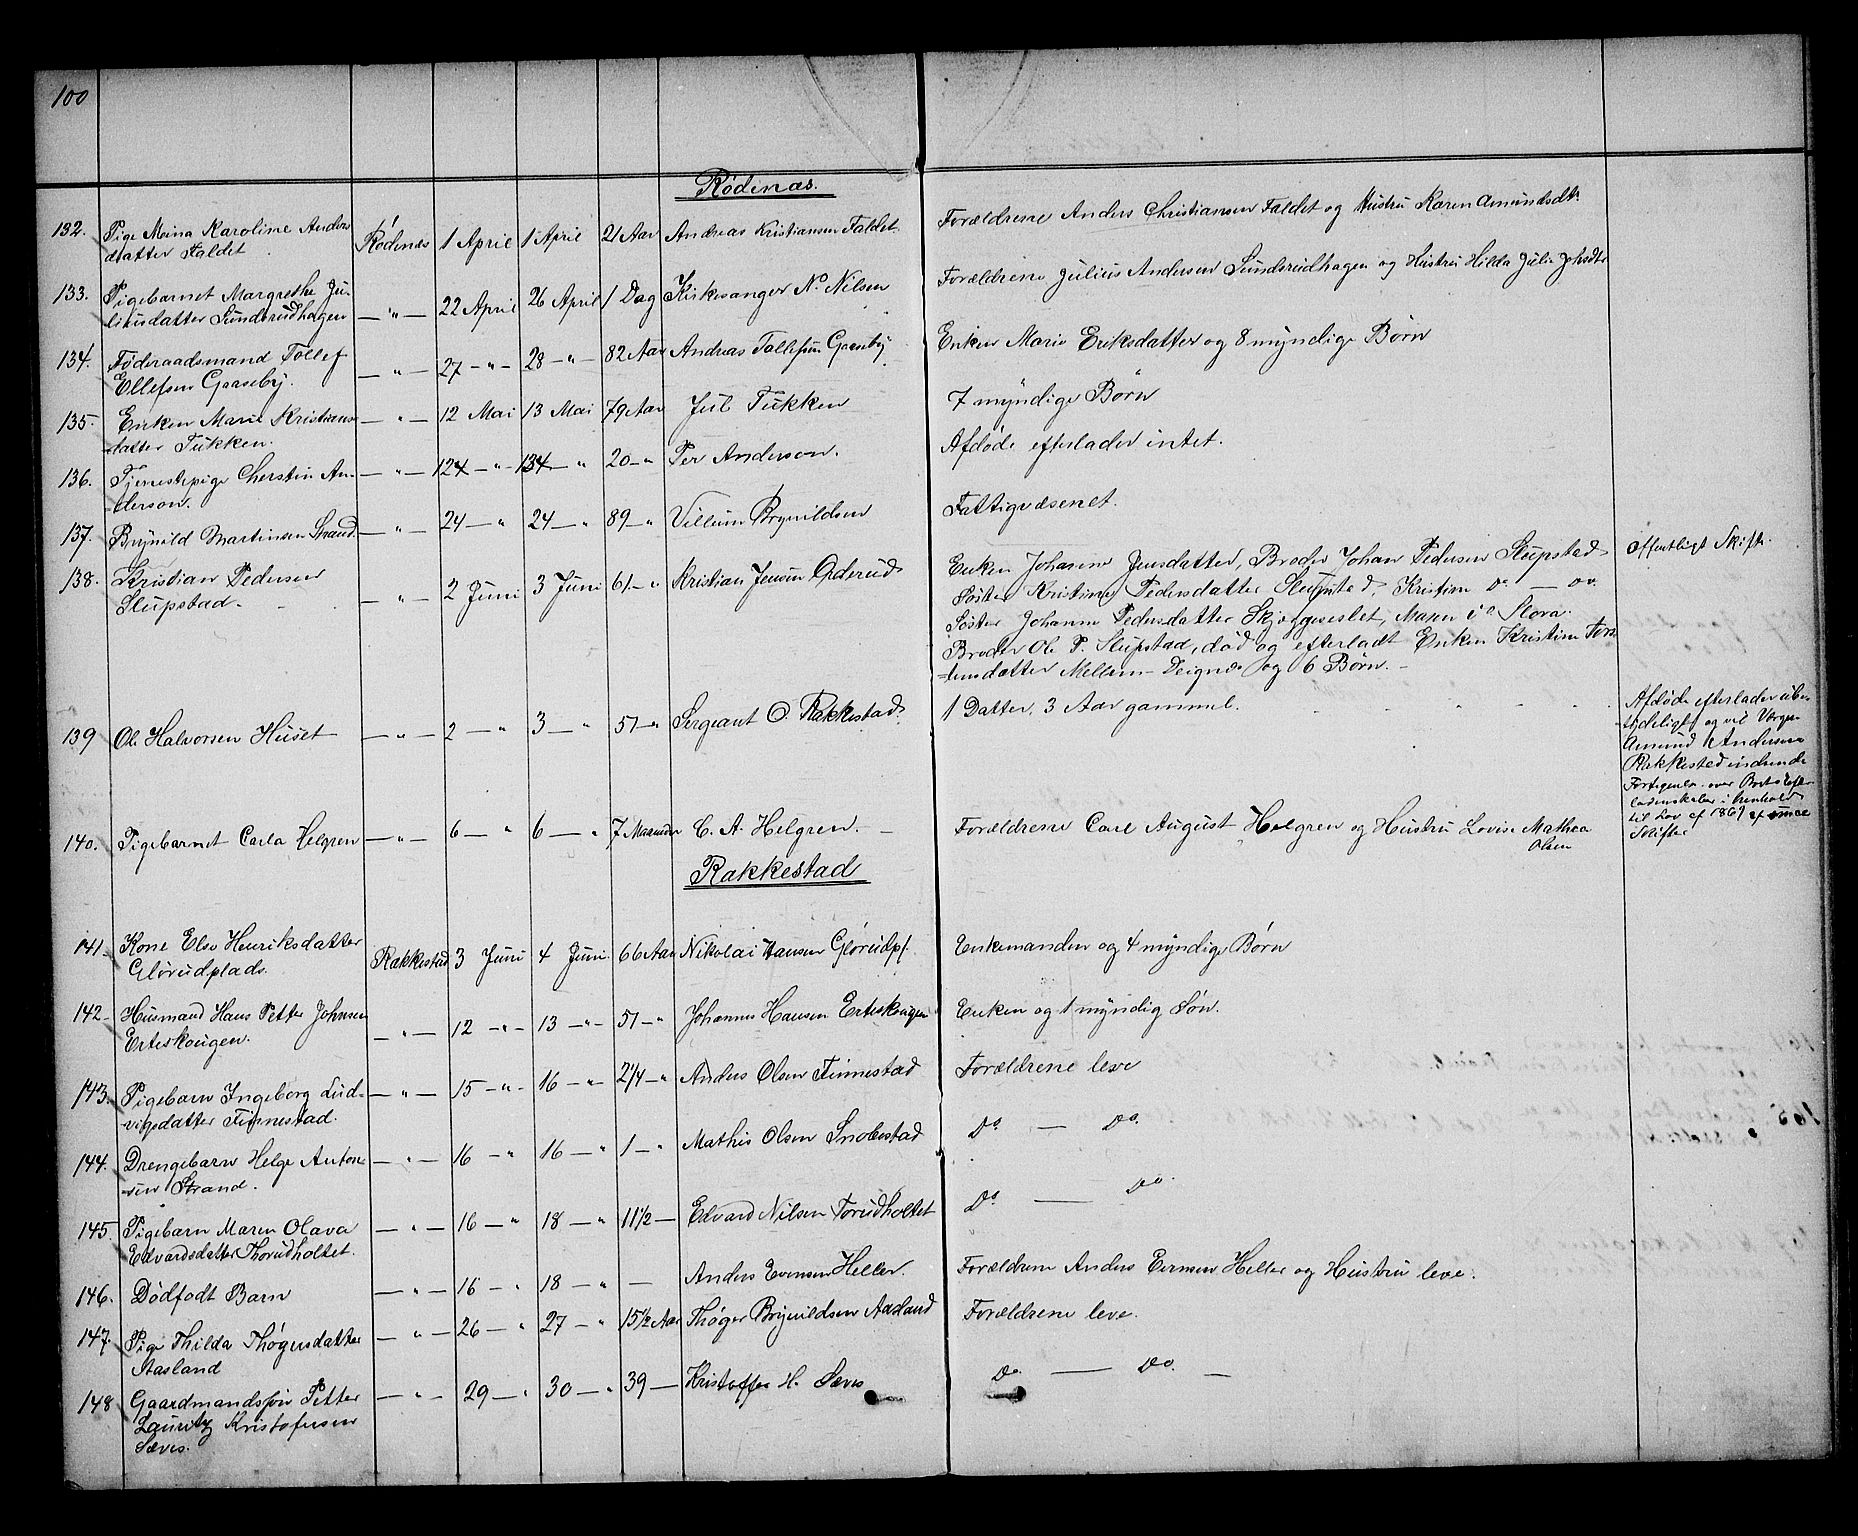 100
Rødenæs.
132. Pige Maina Karoline Anders
datter Faldet. Rødenæs 1 April 1 April 21 Aar Andreas Kristiansen Faldet. Forældrene Anders Christiansen Faldet og Hustru Karen Amundsdtr
133. Pigebarnet Margrethe Ju-
liusdatter Sundsrudhagen — " — 22 April 26 April 1 Dag Kirkesanger N. Nilsen Forældrene Julius Andersen Sundsrudhagen og Hustru Hilda Juli Johsdtr
134. Føderaadsmand Tollef
Ellefsen Gaaseby. — " — 27 — " — 28 — " — 82 Aar Andreas Tollefsen Gaaseby Enken Marie Eriksdatter og 8 myndige Børn
135. Enken Marie Kristians-
datter Tukken. — " — 12 Mai 13 Mai 79 Aar Jul Tukken 7 myndige Børn
136. Tjenestepige Cherstin An-
derson. — " — — " — — " 20 — " Per Anderson. Afdøde efterlader intet.
137. Brynild Martinsen Strand. — " — 24 — " 24 — " 89 — " Villum Brynildsen Fattigvæsenet.
138. Kristian Pedersen
Slupstad. — " — 2 Juni 3 Juni 61 — " Kristian Jensen Oderud Enken Johanne Jensdatter, Broder Johan Pedersen Slupstad Offentligt Skifte.
Søster Kristine Pedersdatter Slupstad, Kristine do — do.
Søster Johanne Pedersdatter Skjæggeseslet, Maren i Slora.
Broder Ole P. Slupstad, død og efterladt Enken Kristine Tors
tensdatter Mellem-Deignæs og 6 Børn. —
139 Ole Halvorsen Huset — " — 2 — " 3 — " 51 — " Sergeant O. Rakkestad. 1 Datter, 3 Aar gammel. Afdøde efterlader ube-
tydeligt og vil Værgen
Amund Andersen
Rakkestad indsende
Fortegnelse over Bo
ladenskaber i henhold
til Lov af 1869
Skifte
140. Pigebarnet Carla Helgren — " — 6 — " 6 — " 7 Maaneder C. A. Helgren. — Forældrene Carl August Helgren og Hustru Lovise Mathea
Olsen
Rakkestad
141. Kone Else Henriksdatter
Glørudplads. Rakkestad 3 Juni 4 Juni. 66 Aar Nikolai Hansen Glørudpl. Enkemanden og 4 myndige Børn
142. Husmand Hans Petter Johnsen
Erteskougen. — " — 12 — " — 13 — " — 51 — " Johannes Hansen Erteskougen Enken og 1 myndig Søn.
143. Pigebarn Ingeborg Lud-
vigsdatter Finnestad. — " — 15 — " — 16 — " — 2 1/4 — " Anders Olsen Finnestad Forældrene leve
144. Drengebarn Helge Anton-
sen Strand. — " — 16 — " 16 — " 1 — " Mathis Olsen Snobestad do — do.
145 Pigebarn Maren Olava
Edvardsdatter Thorudholtet. — " — 16 — " 18 — " 11 1/2 — Edvard Nilsen Torudholtet do — do.
146. Dödfödt Barn — " — 16 — " 18 — " — Anders Evensen Heller. Forældrene Anders Evensen Heller og Hustru leve.
147. Pige Thilda Thøgersdatter
Aasland — " — 26 — " 27 — " 15 1/2 Aar Thøger Brynildsen Aasland Forældrene leve.
148 Gaardmandssøn Petter
Lauritz Kristofersen
Sæves. — " — 29 — " 30 — " 39 — Kristoffer H. Sæves do — do. —